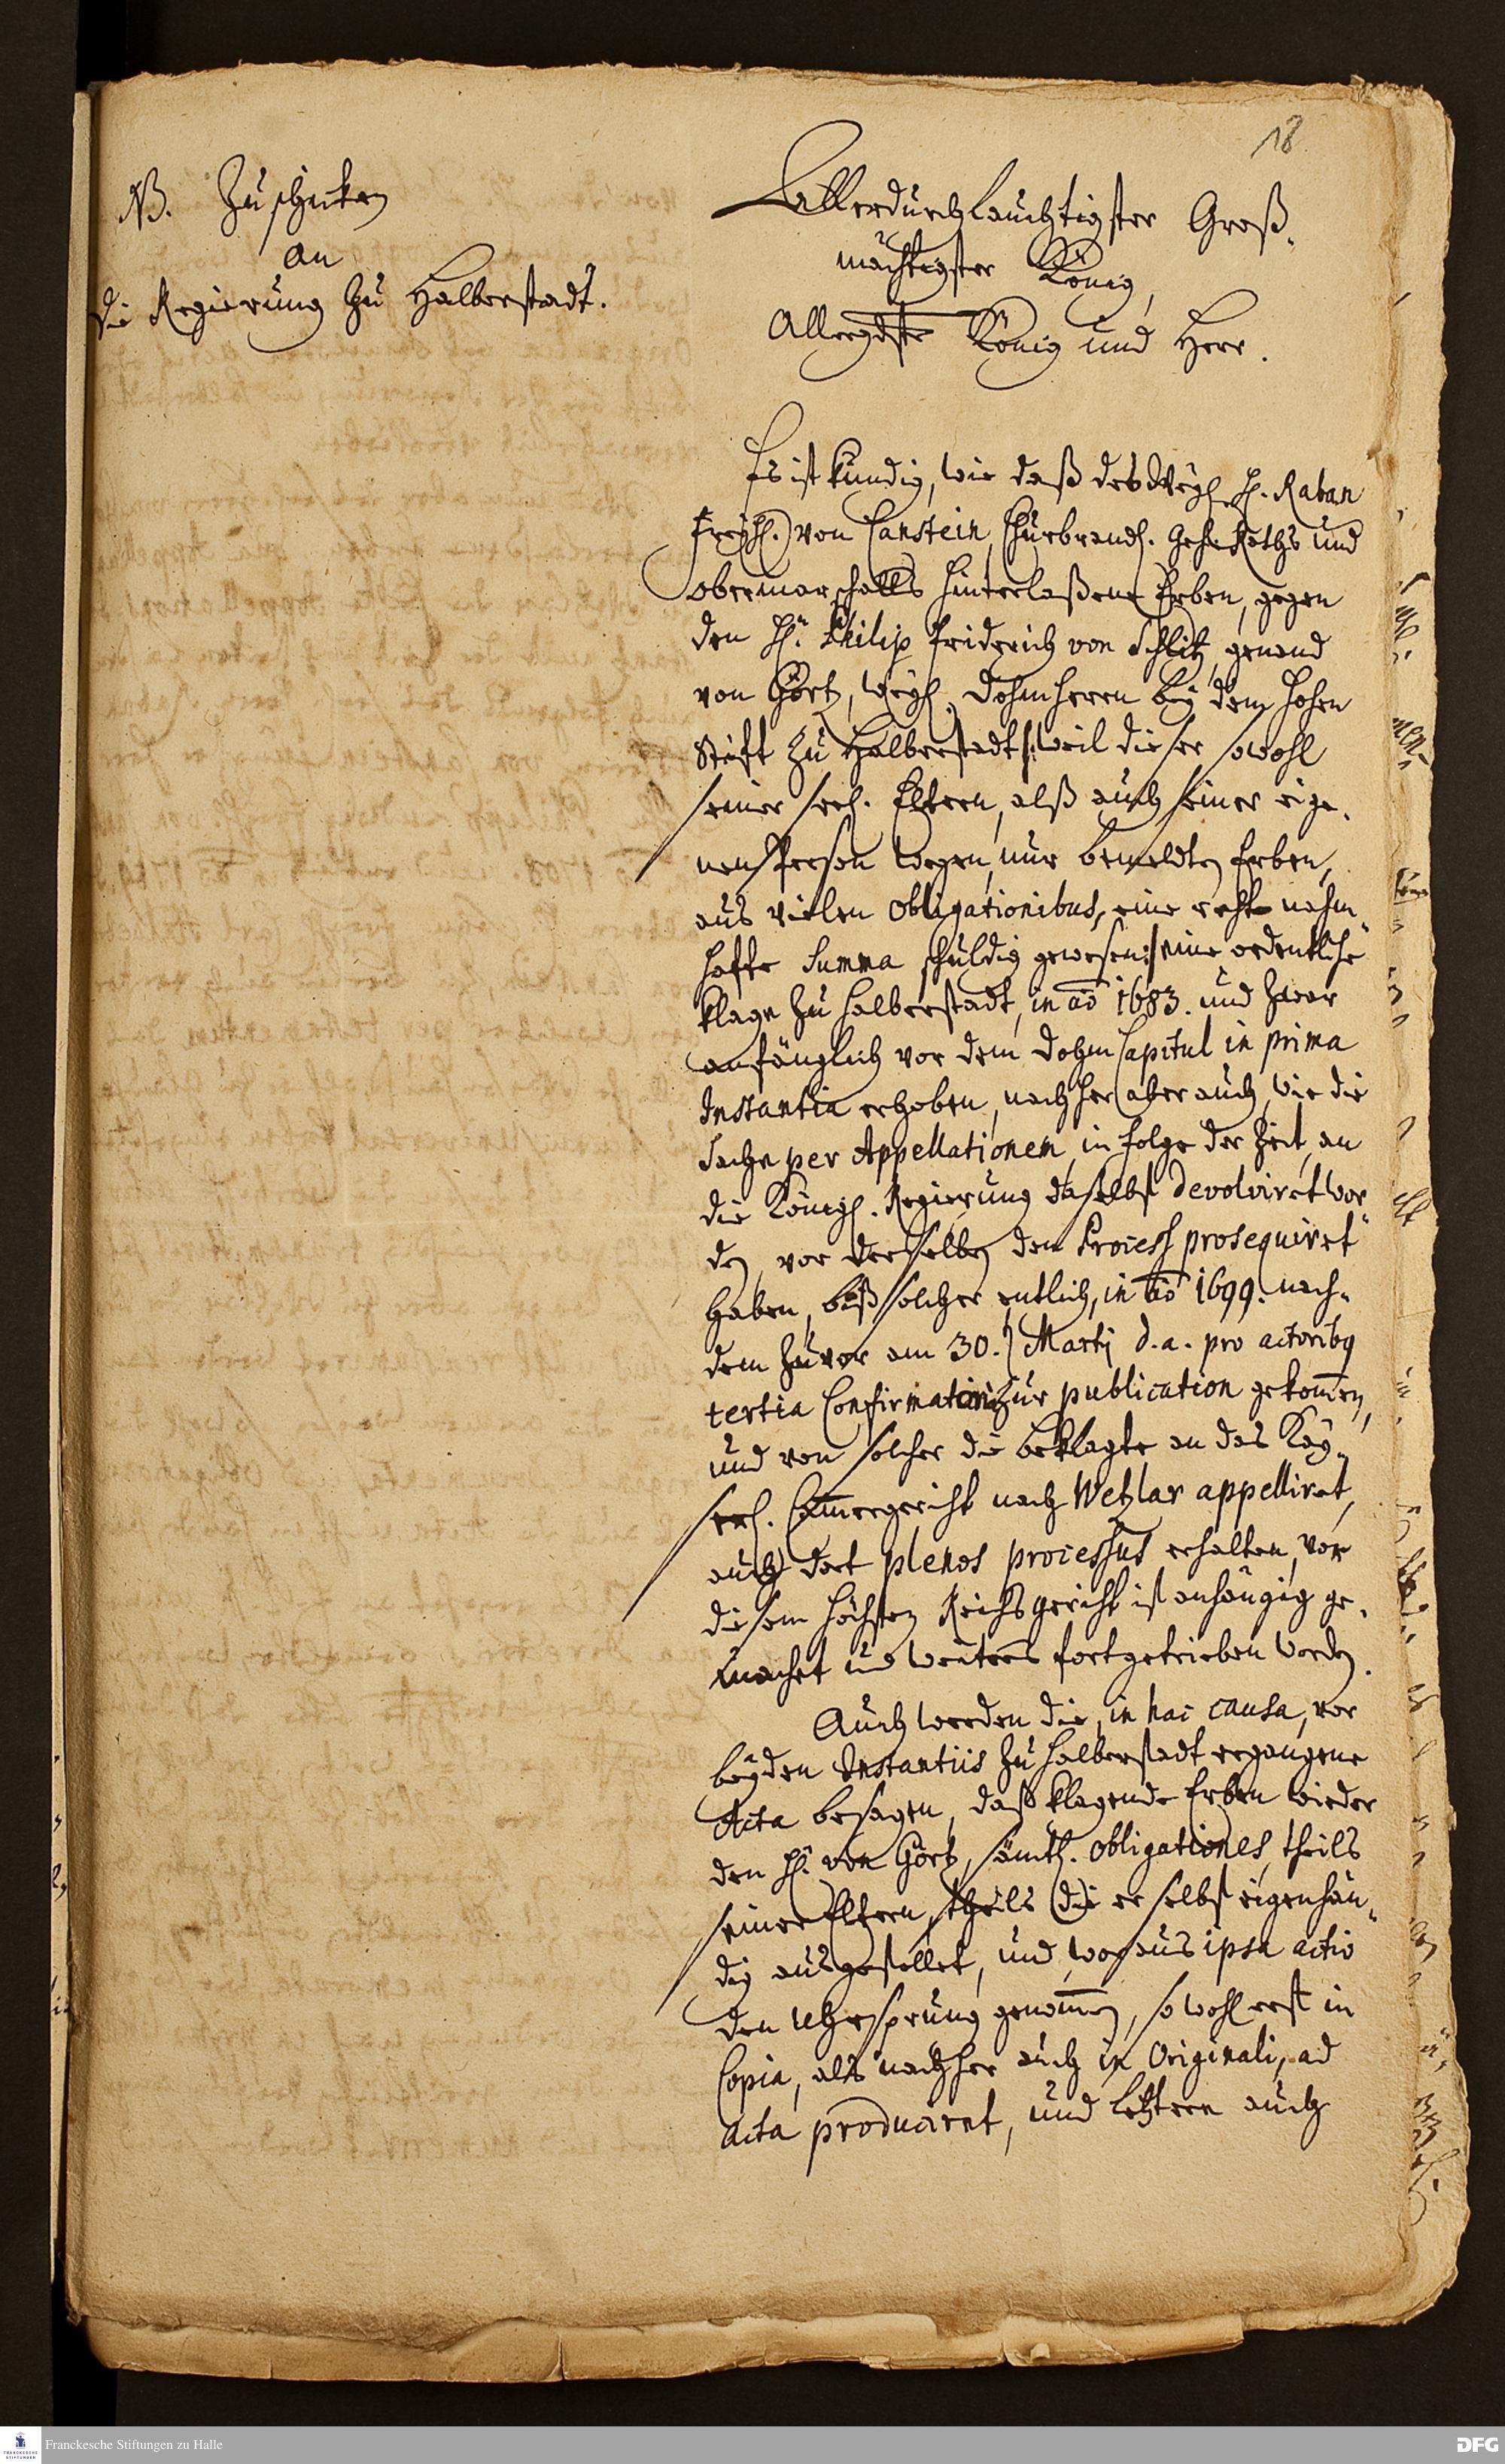 18
NB. Zuschicken
an
die Regierung zu Halberstadt.
Allerdurchlauchtigster Groß-
mächtigster König,
Allergdste König und Herr.
Es ist kundig, wie daß des Weyl. H. Raban
Freyh. von Canstein, Churbrand. Geh. Raths und
obermarschalls hinterlaßene Erben, gegen
den H. Philip Friderich von Schlitz, genand
von Görtz, Weyl. Dohmherren bey dem hohen
Stift zu Halberstadt /: weil dieser, sowohl
seiner seel. Eltern, alß auch seiner eige-
nen Person wegen, nur bemeldten Erben,
aus vielen obligationibus, eine recht nahm-
haffte Summa schuldig gewesen :/ eine ordentliche
klage zu Halberstadt, in ao 1683. und zwar
anfänglich vor dem Dohm Capitul in prima
Instantia erhoben, nachher aber auch, wie die
Sache per Appellationem in folge der Zeit, an
die Königl. Regierung daselbst devolviret wor-
den, vor derselben den Process prosequiret
haben, biß solcher entlich, in ao 1699. nach-
dem zuvor am 30. Martij d. a. pro actoribq
tertia Confirmatoria zur publication gekommen,
und von solcher die beklagte an das Kay-
serl. Cammergericht nach Wetzlar appelliret,
auch dort plenos processus erhalten, vor
diesem höchsten Reichsgericht ist anhängig ge-
machet und weiters fortgetrieben worden.
Auch werden die, in hac causa, vor
beyden Instantiis zu Halberstadt ergangene
Acta besagen, daß klagende Erben wieder
den H. von Görtz, sämtl. obligationes, theils
seiner Eltern, theils die er selbst eigenhän-
dig ausgestellet, und woraus ipsa actio
den Uhrsprung genommen, sowohl erst in
Copia, als nachher auch in Originali, ad
acta produciret, und letztere auch
Franckesche Stiftungen zu Halle
DFG